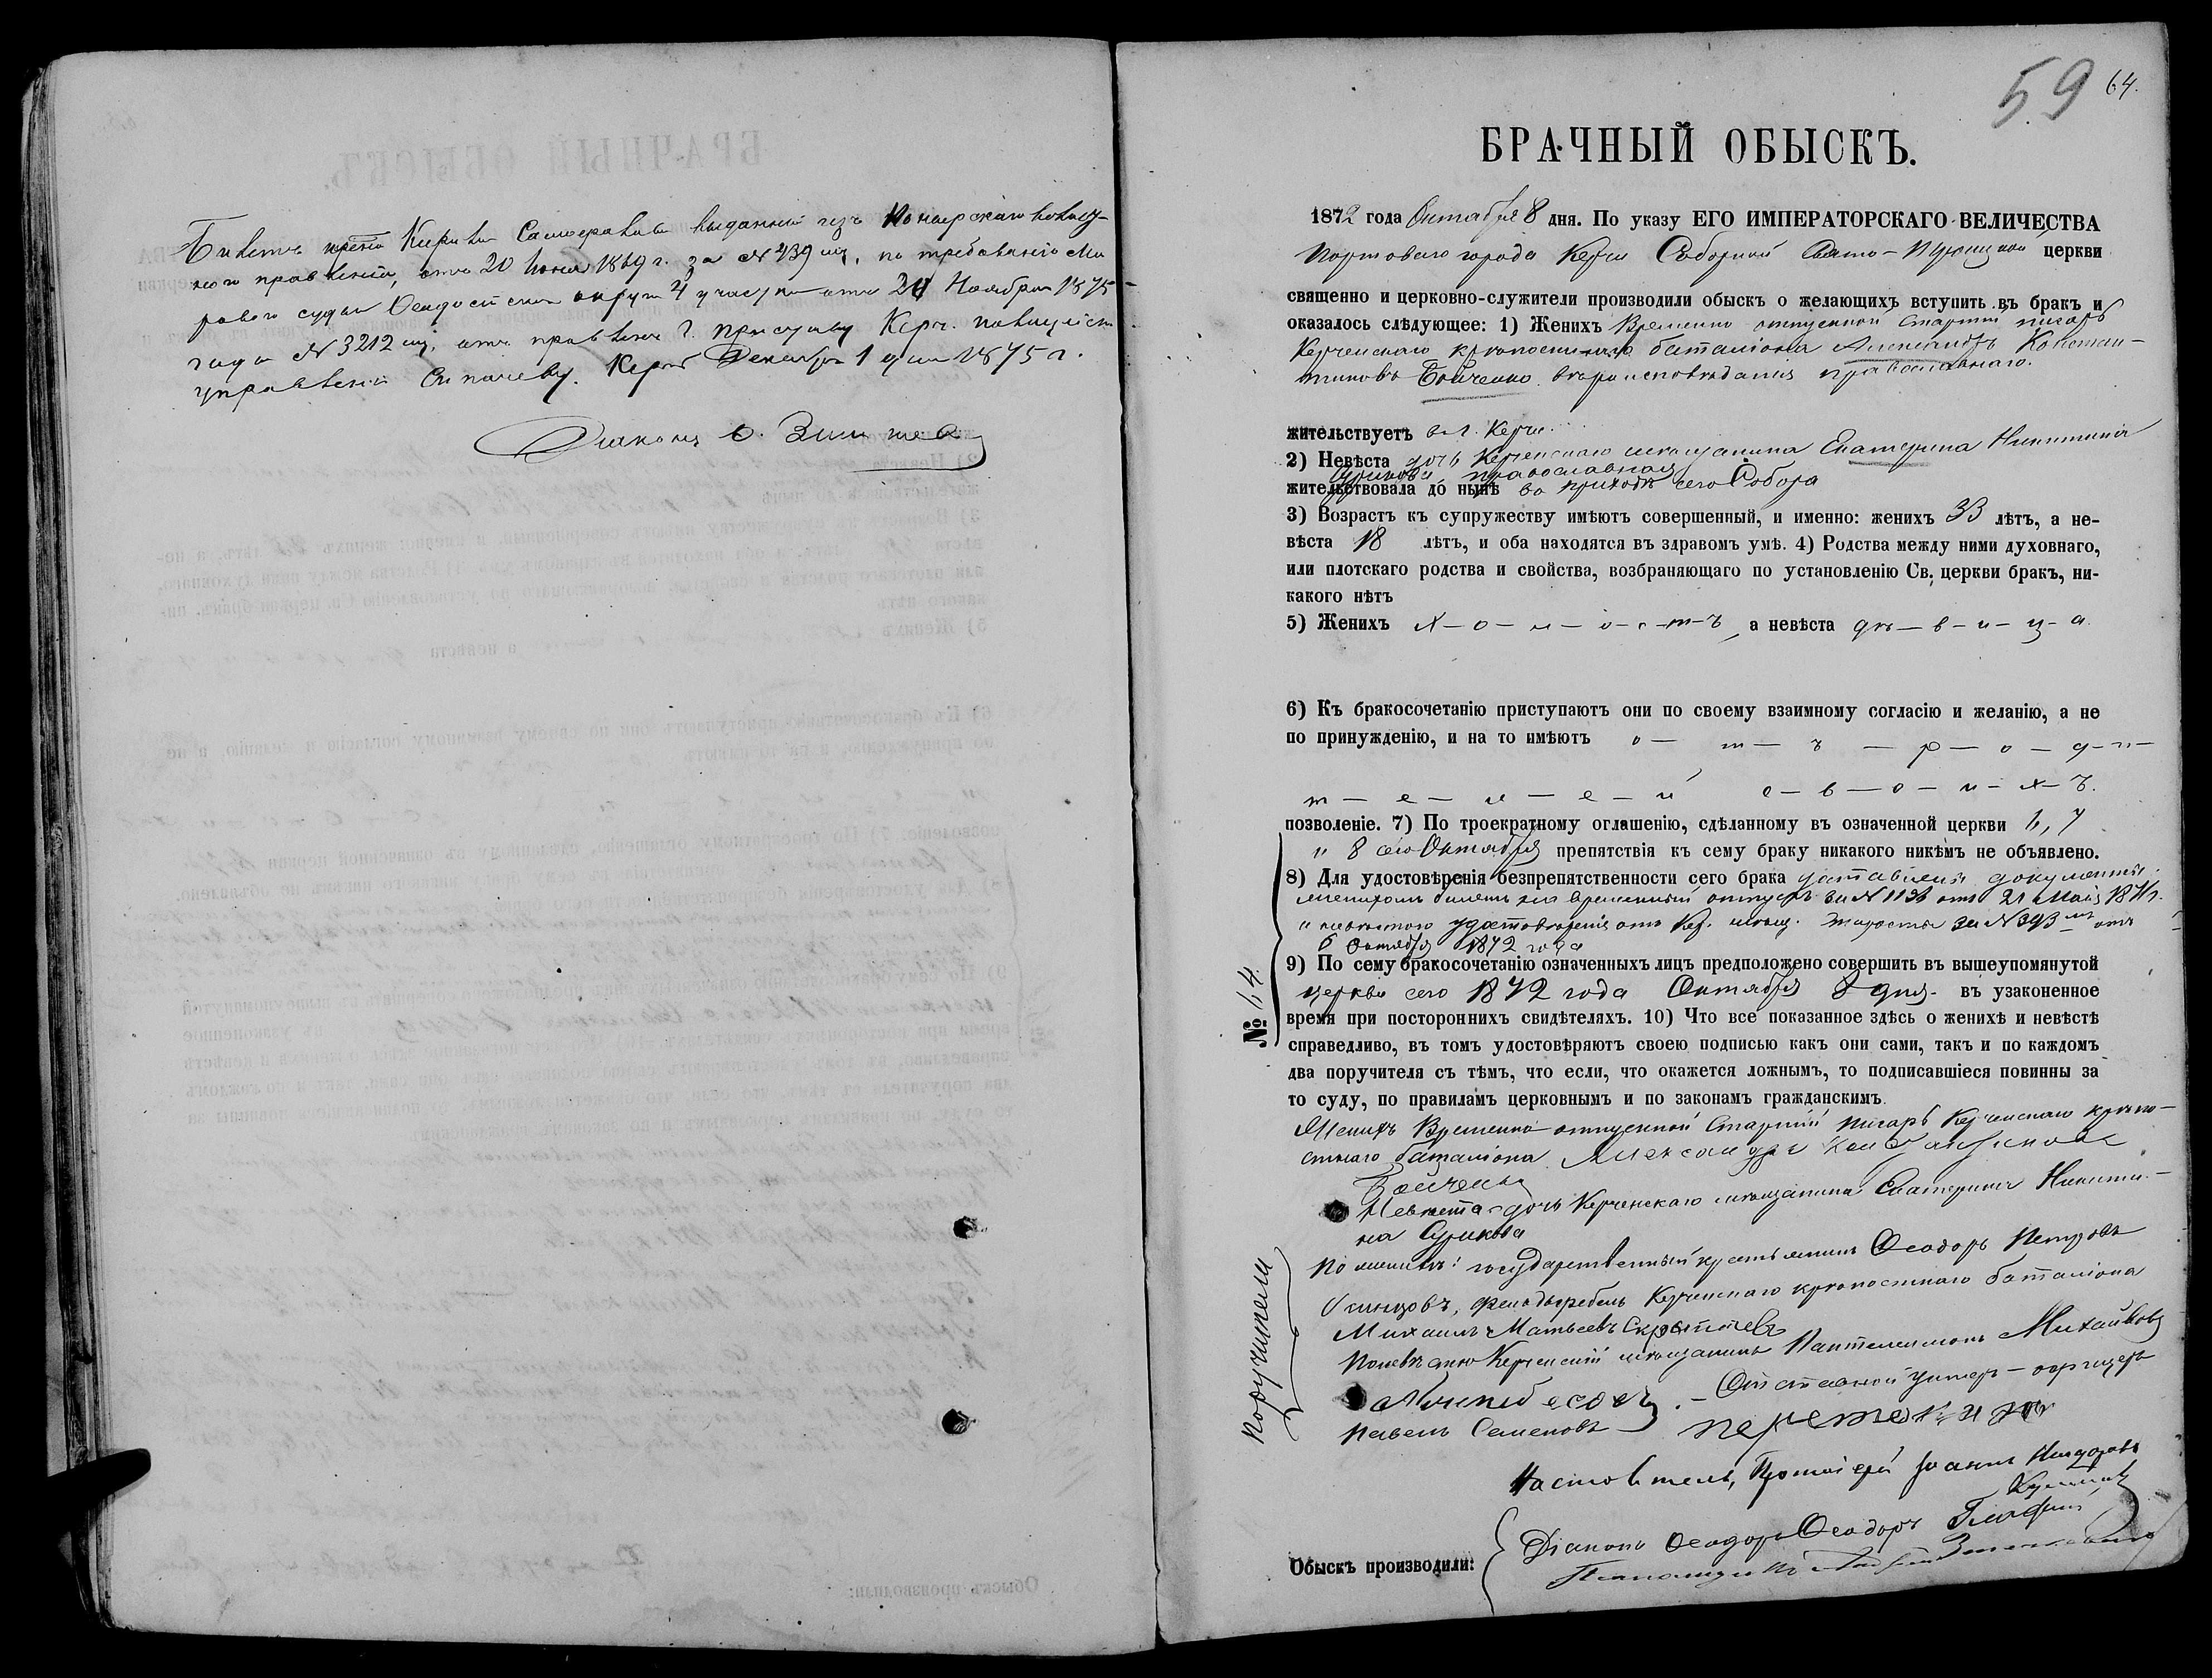 Билетъ Кирилла выданный изъ
наго правленія, отъ 20 Іюня 1869 г. за № 239 мъ, по требованію Ми
роваго судьи Ѳеодосійскаго округа 4 участка отъ 24 Ноября 1875
года № 3212 мъ, отправленъ Г. приставу Керч. полицейск
управленія Керчь Декабря 1 дня 1875 г.
Діаконъ Ѳ.
59 64.
БРАЧНЫЙ ОБЫСКЪ.
1872 года Октября 8 дня. По указу ЕГО ИМПЕРАТОРСКАГО ВЕЛИЧЕСТВА
Портоваго города Керчи Соборной Свято-Троицкой церкви
священно и церковно-служители производили обыскъ о желающихъ вступить въ бракъ и
оказалось слѣдующее: 1) Женихъ Временно отпускной старшій писарь
Керченскаго крѣпостнаго баталіона Александръ Констан-
тиновъ Бойченко вѣроисповѣданія православнаго.
жительствуетъ въ г. Керчи.
2) Невѣста дочь Керченскаго мѣщанина Екатерина Никитина
Сурикова, православная
жительствовала до нынѣ въ приходѣ сего Собора
3) Возрастъ къ супружеству имѣютъ совершенный, и именно: женихъ 33 лѣтъ, а не-
вѣста 18 лѣтъ, и оба находятся въ здравомъ умѣ. 4) Родства между ними духовнаго,
или плотскаго родства и свойства, возбраняющаго по установленію Св. церкви бракъ, ни-
какого нѣтъ
5) Женихъ х-о-л-о-с-т-ъ, а невѣста дѣ-в-и-ц-а
6) Къ бракосочетанію приступаютъ они по своему взаимному согласію и желанію, а не
по принужденію, и на то имѣютъ о- т- ъ -р-о-д-и-
т-е-л-е-й с-в-о-и-х-ъ.
позволеніе. 7) По троекратному оглашенію, сдѣланному въ означенной церкви 6, 7
и 8 сего Октября препятствія къ сему браку никакого никѣмъ не объявлено.
8) Для удостовѣренія безпрепятственности сего брака документы:
женихомъ билетъ временный отпускъ за № отъ 21 Мая
и невѣстою удостовѣреніе отъ Кер. мѣщ. старосты за № 393 мъ отъ
6 Октября 1872 года
9) По сему бракосочетанію означенныхъ лицъ предположено совершить въ вышеупомянутой
церкви сего 1872 года Октября 8 дня въ узаконенное
время при постороннихъ свидѣтеляхъ. 10) Что все показанное здѣсь о женихѣ и невѣстѣ
справедливо, въ томъ удостовѣряютъ своею подписью какъ они сами, такъ и по каждомъ
два поручителя съ тѣмъ, что если, что окажется ложнымъ, то подписавшіеся повинны за
то суду, по правиламъ церковнымъ и по законамъ гражданскимъ.
№ 64.
Женихъ Временно отпускной Старшій писарь Керченскаго крѣпо-
стнаго баталіона Александръ Константиновъ
Бойченко
Невѣста дочь Керченскаго мѣщанина Екатерина Никити-
на Сурикова
Поручители
По женихѣ: государственный крестьянинъ Ѳеодоръ Петровъ
фельдфебель Керченскаго крѣпостнаго баталіона
Михаилъ Матвеевъ
По невѣстѣ Керченскій мѣщанинъ Пантелеимонъ Михайловъ
Отставной унтеръ-офицеръ
Павелъ Семеновъ
Настоятель, Протоіерей Іоаннъ
Обыскъ производили:
Діаконъ Ѳеодоръ Ѳеодоръ